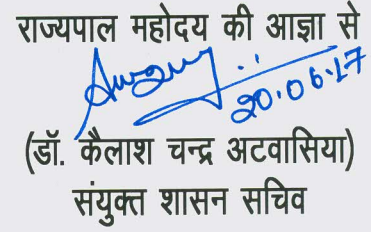 राज्यपाल महोदय की आज्ञा से
20.06.17
(डॉ. कैलाश चन्द्र अटवासिया)
संयुक्त शासन सचिव